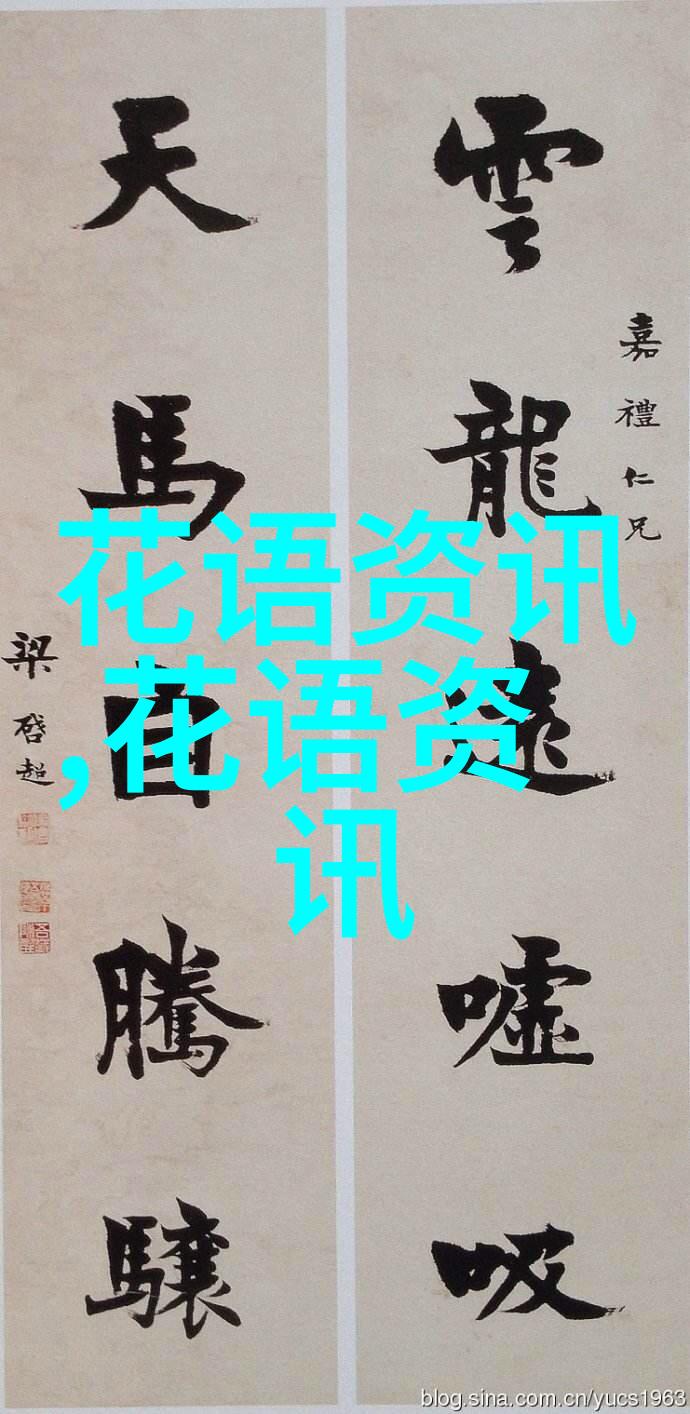 嘉禮仁兄
雲龍遠噓吸
天馬自騰驤
梁啓超
花语资讯
,花语资
讯
blog.sina.com.cn/yucs1963